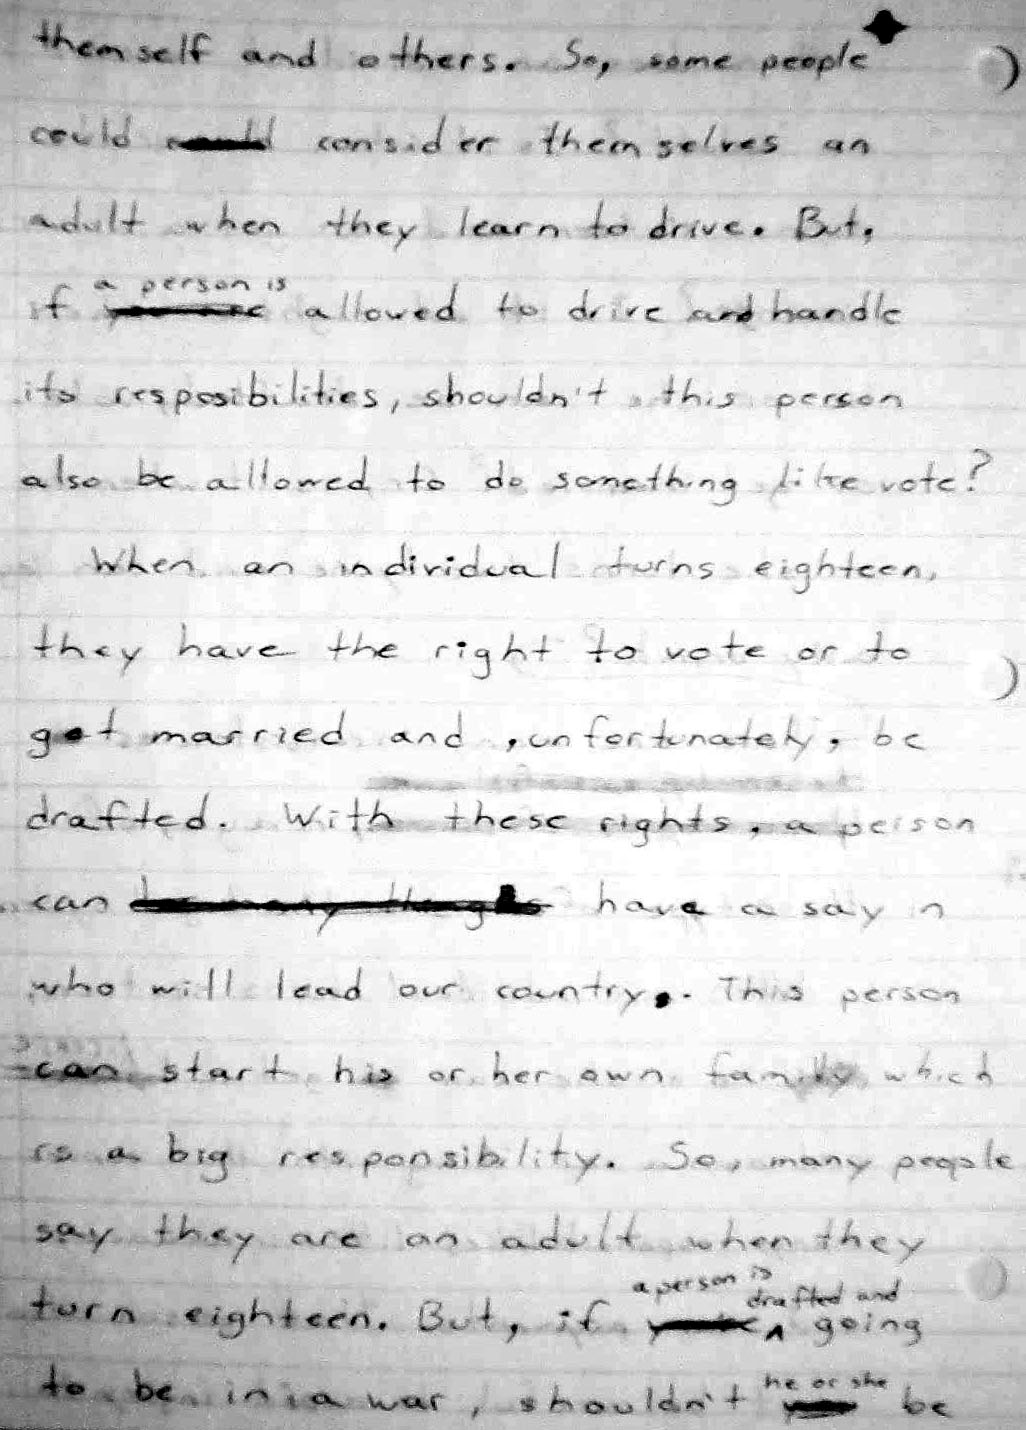 themself and others. So, some people
could consider themselves an
adult when they learn to drive. But,
a person is
if allowed to drive and handle
its resposibilities, shouldn't this person
also be allowed to do something like vote?
When an individual turns eighteen,
they have the right to vote or to
get married and ,unfortunately, be
drafted. With these rights, a person
can be many things have a say in
who will lead our country. This person
can start his or her own family which
is a big responsibility. So, many people
say they are an adult when they
a person is
drafted and
turn eighteen. But, if ^ going
he or she
to be in a war, shouldn't be